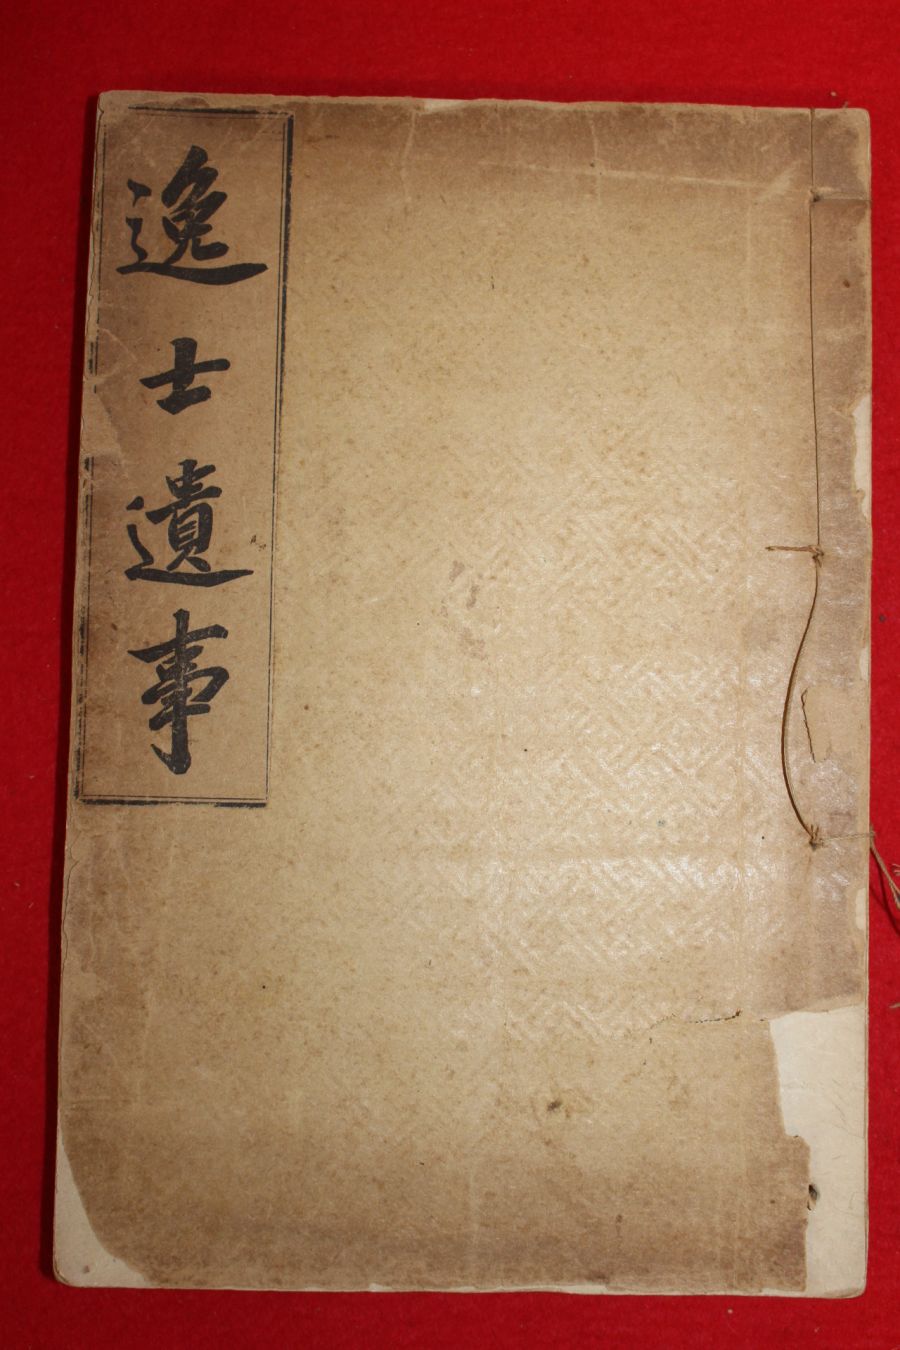 逸士遺事